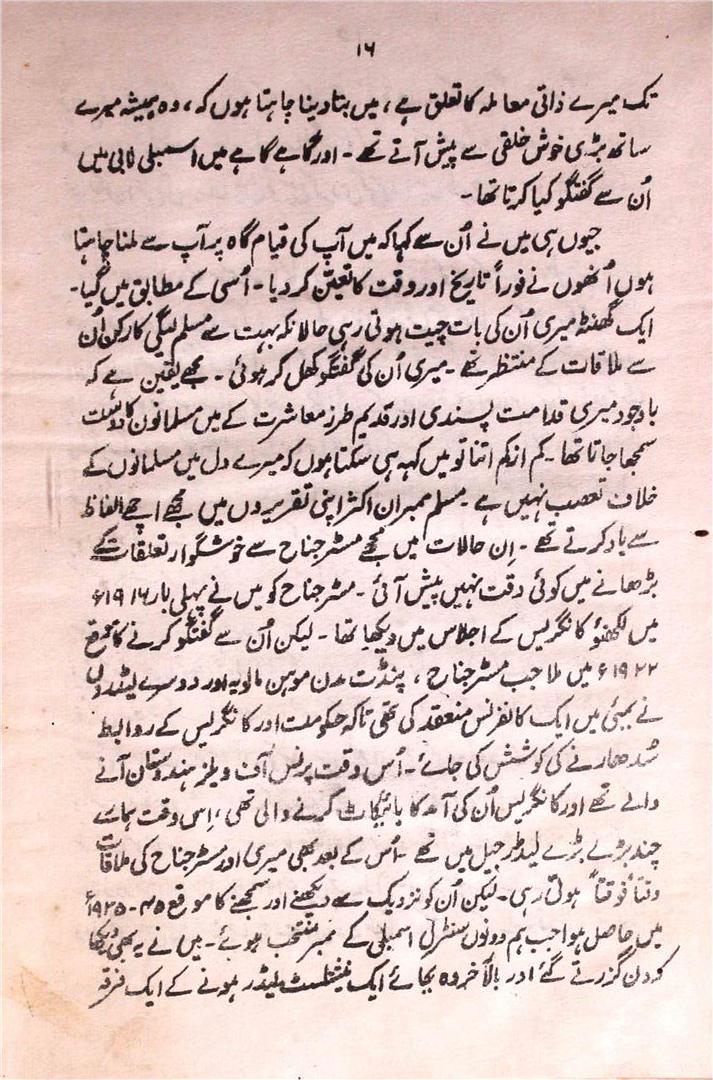 ۱۶
تک میرے ذاتی معاملہ کا تعلق ہے ، میں بتا دینا چاہتا ہوں کہ ، وہ ہمیشہ میرے
ساتھ بڑی خوش خلقی سے پیش آتے تھے - اور گاہے گاہے میں اسمبلی لابی میں
اُن سے گفتگو کیا کرتا تھا -
جیوں ہی میں نے اُن سے کہا کہ میں آپ کی قیام گاہ پر آپ سے ملنا چاہتا
ہوں اُنھوں نے فوراً تاریخ اور وقت کا تعین کر دیا - اُسی کے مطابق میں گیا -
ایک گھنٹہ میری اُن کی بات چیت ہوتی رہی حالانکہ بہت سے مسلم لیگی کارکن اُن
سے ملاقات کے منتظر تھے - میری اُن کی گفتگو کھل کر ہوئی - مجھے یقین ہے کہ
باوجود میری قدامت پسندی اور قدیم طرز معاشرت کے میں مسلمانوں کا دوست
سمجھا جاتا تھا - کم ازکم اتنا تو میں کہہ ہی سکتا ہوں کہ میرے دل میں مسلمانوں کے
خلاف تعصب نہیں ہے - مسلم ممبران اکثر اپنی تقریروں میں مجھے اچھے الفاظ
سے یاد کرتے تھے - اِن حالات میں مجھے مسٹر جناح سے خوشگوار تعلقات کے
بڑھانے میں کوئی دقت نہیں پیش آئی - مسٹر جناح کو میں نے پہلی بار ۱۹۱۶ء
میں لکھنؤ کانگریس کے اجلاس میں دیکھا تھا - لیکن اُن سے گفتگو کرنے کا موقع
۱۹۲۲ء میں ملا جب مسٹر جناح ، پنڈت مدن موہن مالویہ اور دوسرے لیڈروں
نے بمبئی میں ایک کانفرنس منعقد کی تھی تاکہ حکومت اور کانگریس کے روابط
سُدھارنے کی کوشش کی جائے - اُس وقت پرنس آف ویلز ہندوستان آنے
والے تھے اور کانگریس اُن کی آمد کا بائیکاٹ کرنے والی تھی ، اِسی وقت ہمارے
چند بڑے بڑے لیڈر جیل میں تھے - اُس کے بعد بھی میری اور مسٹر جناح کی ملاقات
وقتاً فوقتاً ہوتی رہی - لیکن اُن کو نزدیک سے دیکھنے اور سمجھنے کا موقع ۴۵-۱۹۳۵ء
میں حاصل ہوا جب ہم دونوں سنٹرل اسمبلی کے ممبر منتخب ہوئے - میں نے یہ بھی دیکھا
کہ دن گزرتے گئے اور بالآخر وہ بجائے ایک نیشنلسٹ لیڈر ہونے کے ایک فرقہ